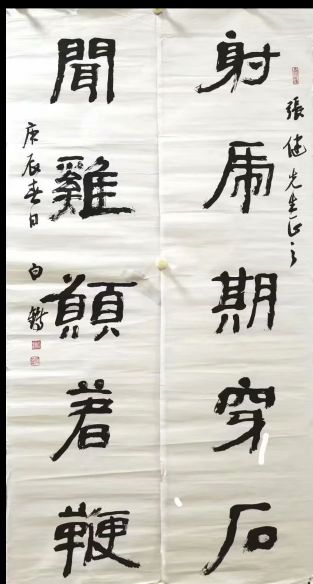 張健先生正之
射虎期穿石
聞雞願著鞭
庚辰春日 白